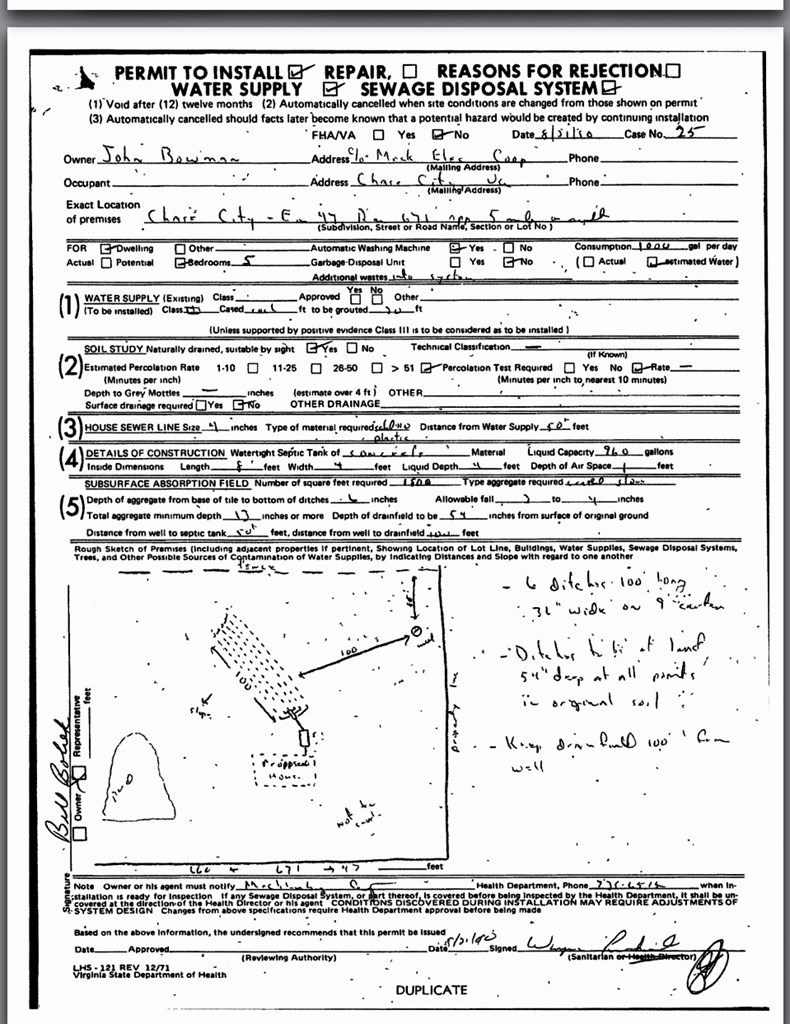 PERMIT TO INSTALL ☑ REPAIR, ☐ REASONS FOR REJECTION ☐
WATER SUPPLY ☑ SEWAGE DISPOSAL SYSTEM ☑
(1) Void after (12) twelve months (2) Automatically cancelled when site conditions are changed from those shown on permit
(3) Automatically cancelled should facts later become known that a potential hazard would be created by continuing installation
FHA/VA ☐ Yes ☑ No Date Case No. 25
Owner John Bowman Address c/o Meck Elec Coop Phone
(Mailing Address)
Occupant Address Chase City Va Phone
(Mailing Address)
Exact Location
of premises Chase City - 47 671 5
(Subdivision, Street or Road Name, Section or Lot No )
FOR ☑ Dwelling ☐ Other Automatic Washing Machine ☑ Yes ☐ No Consumption 1000 gal per day
Actual ☐ Potential ☑ Bedrooms 5 Garbage Disposal Unit ☐ Yes ☑ No (☐ Actual ☑ estimated Water)
Additional wastes into system
(1) WATER SUPPLY (Existing) Class Approved Yes ☐ No ☐ Other
(To be installed) Class Cased ft to be grouted ft
(Unless supported by positive evidence Class III is to be considered as to be installed )
(2) SOIL STUDY Naturally drained, suitable by sight ☑ Yes ☐ No Technical Classification —
(If Known)
Estimated Percolation Rate 1-10 ☐ 11-25 ☐ 26-50 ☐ > 51 ☑ Percolation Test Required ☐ Yes No ☑ Rate —
(Minutes per inch) (Minutes per inch to nearest 10 minutes)
Depth to Grey Mottles — inches (estimate over 4 ft ) OTHER
Surface drainage required ☐ Yes ☑ No OTHER DRAINAGE
(3) HOUSE SEWER LINE Size 4 inches Type of material required plastic Distance from Water Supply 50+ feet
(4) DETAILS OF CONSTRUCTION Watertight Septic Tank of concrete Material Liquid Capacity 960 gallons
Inside Dimensions Length 8 feet Width 4 feet Liquid Depth 4 feet Depth of Air Space 1 feet
(5) SUBSURFACE ABSORPTION FIELD Number of square feet required 1800 Type aggregate required stone
Depth of aggregate from base of tile to bottom of ditches 6 inches Allowable fall 2 to 4 inches
Total aggregate minimum depth 13 inches or more Depth of drainfield to be 54 inches from surface of original ground
Distance from well to septic tank 50+ feet, distance from well to drainfield 100 feet
Rough Sketch of Premises (including adjacent properties if pertinent, Showing Location of Lot Line, Buildings, Water Supplies, Sewage Disposal Systems,
Trees, and Other Possible Sources of Contamination of Water Supplies, by Indicating Distances and Slope with regard to one another
- 6 ditches 100' long
36" wide on 9' center
- Ditches to be at least
54" deep at all points
in original soil
- Keep drainfield 100' from
well
100
well
100
slope
Proposed
House
Pond
not to scale
Property
Bill
Signature Owner ☐ Representative ☑
feet
671 47 feet
Note Owner or his agent must notify Mecklenburg Health Department, Phone when in-
stallation is ready for inspection If any Sewage Disposal System, or part thereof, is covered before being inspected by the Health Department, it shall be un-
covered at the direction of the Health Director or his agent CONDITIONS DISCOVERED DURING INSTALLATION MAY REQUIRE ADJUSTMENTS OF
SYSTEM DESIGN Changes from above specifications require Health Department approval before being made
Based on the above information, the undersigned recommends that permit be issued
Date Approved Date Signed Wayne
(Reviewing Authority) (Sanitarian or Health Director)
LHS - 121 REV 12/71
Virginia State Department of Health
DUPLICATE